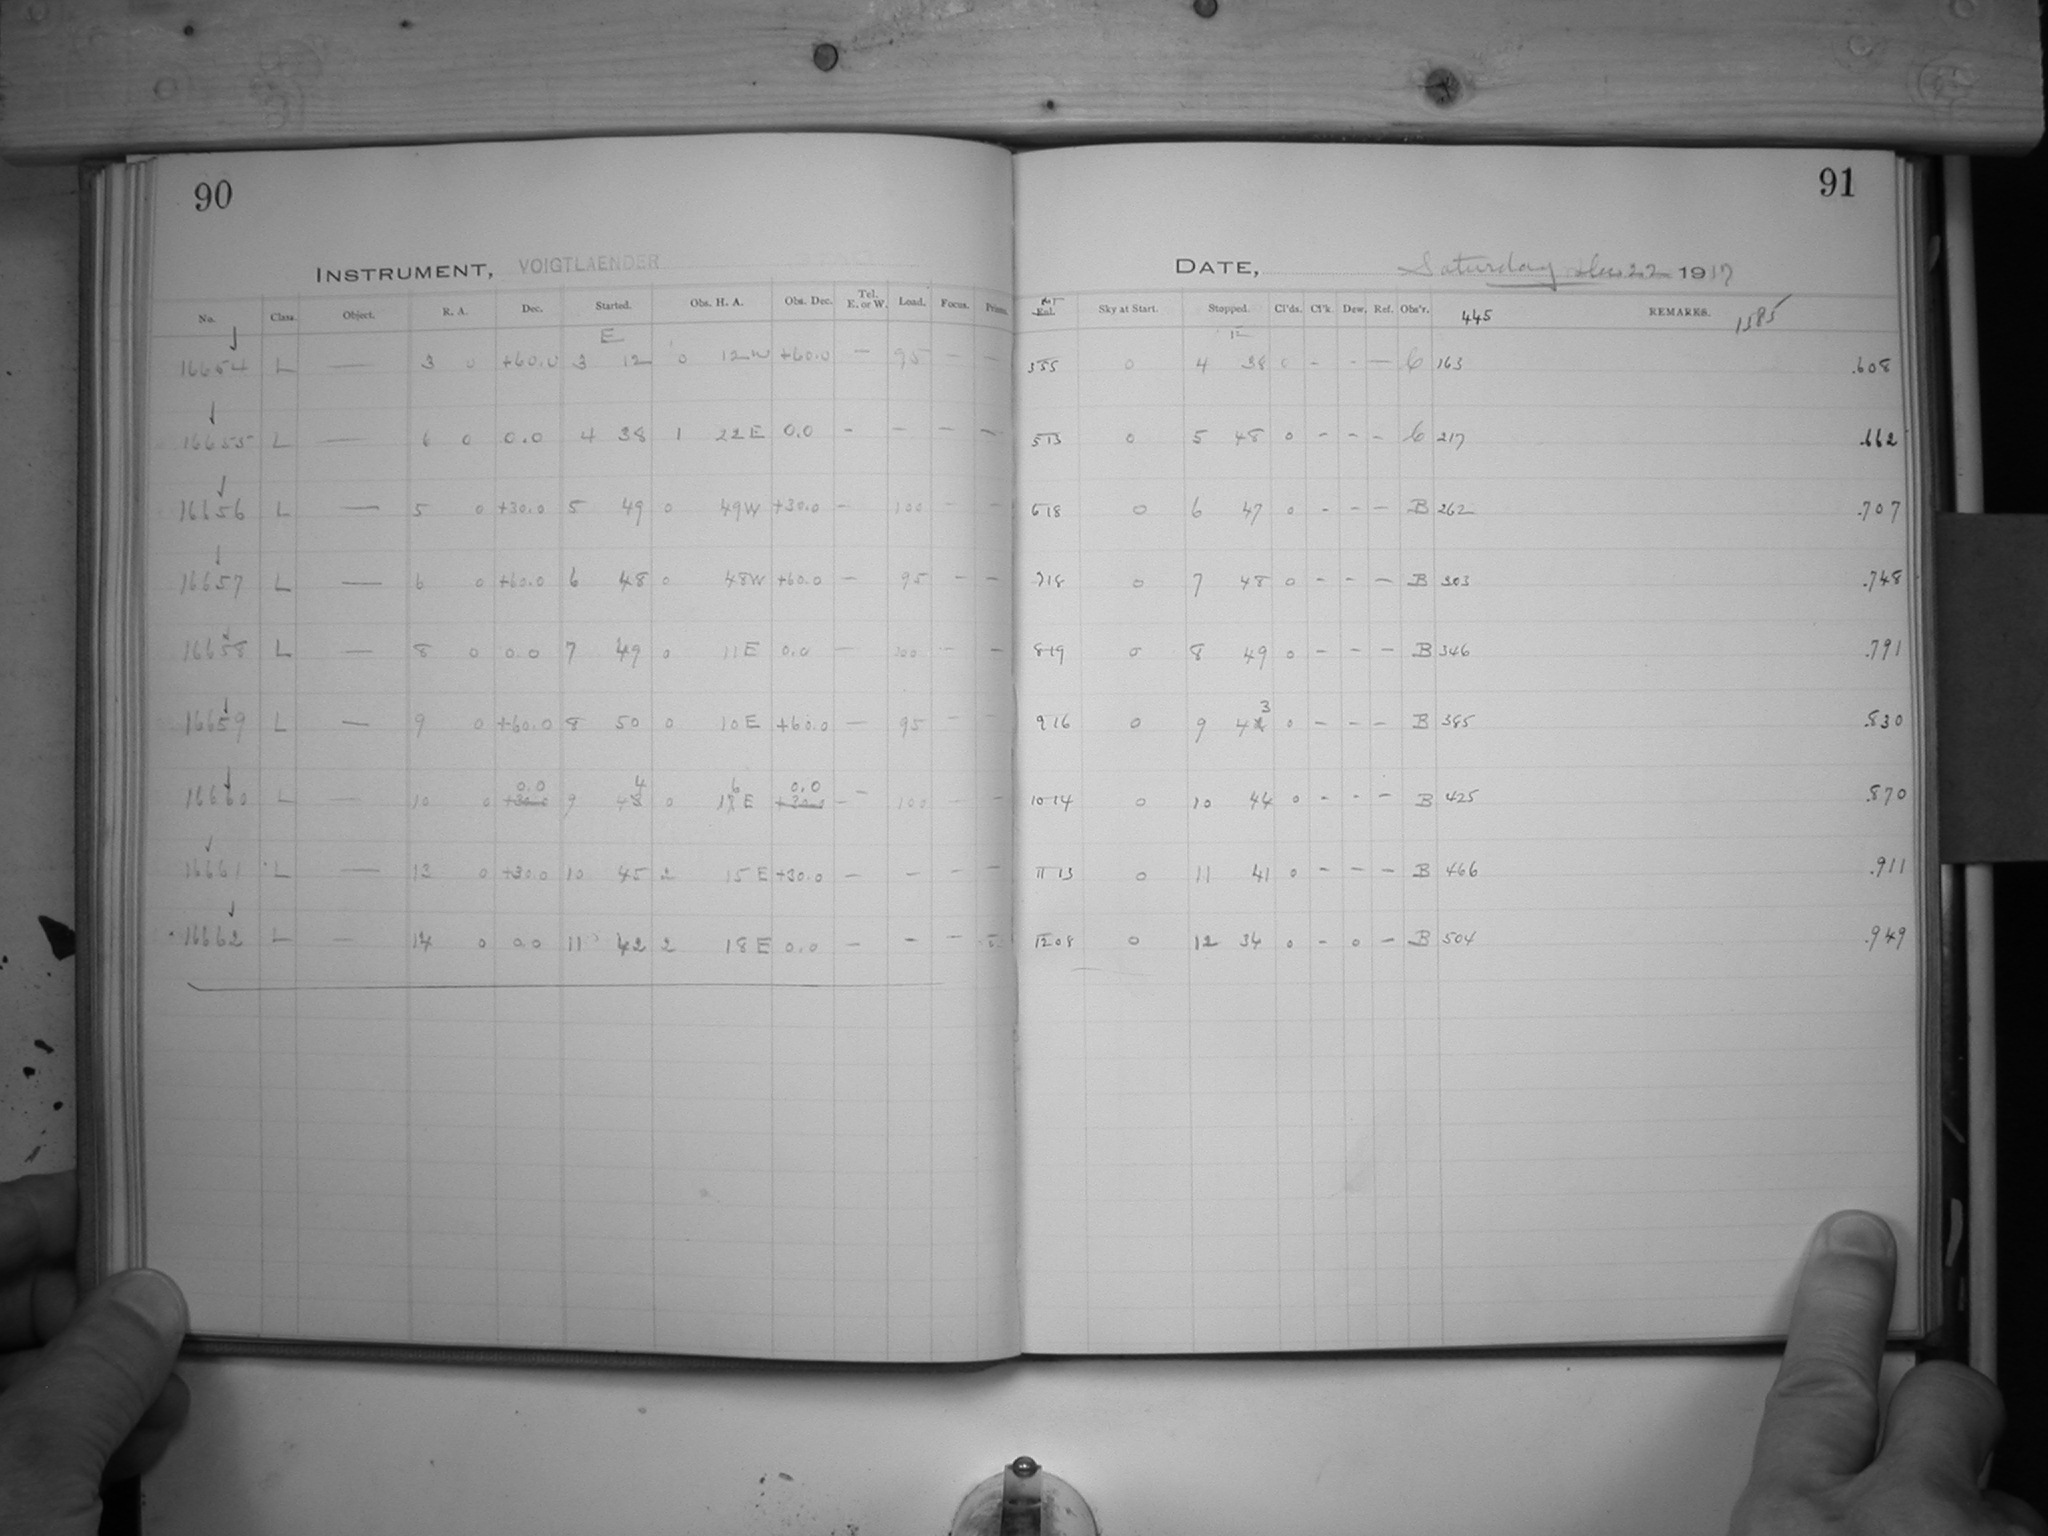 90
INSTRUMENT, VOIGTLAENDER
No. Class. Object. R. A. Dec. Started. Obs. H. A. Obs. Dec. Tel. E. or W. Load. Focus. Prism.
E
16654 L — 3 0 +60.0 3 12 0 12 W +60.0 — 95 — —
16655 L — 6 0 0.0 4 38 1 22 E 0.0 — — — —
16656 L — 5 0 +30.0 5 49 0 49 W +30.0 — 100 — —
16657 L — 6 0 +60.0 6 48 0 48 W +60.0 — 95 — —
16658 L — 8 0 0.0 7 49 0 11 E 0.0 — 100 — —
16659 L — 9 0 +60.0 8 50 0 10 E +60.0 — 95 — —
0.0 4 6 0.0
16660 L — 10 0 +30.0 9 48 0 E +30.0 — 100 — —
16661 L — 13 0 +30.0 10 45 2 15 E +30.0 — — — —
16662 L — 14 0 0.0 11 42 2 18 E 0.0 — — —
91
DATE, Saturday 22 1917
Sky at Start. Stopped. Cl'ds. Cl'k. Dew. Ref. Obs'r. 445 REMARKS. 1585
E
355 0 4 38 0 - - — C 163 .608
513 0 5 48 0 - - - C 217 .662
618 0 6 47 0 - - — B 262 .707
718 0 7 48 0 - - — B 303 .748
819 0 8 49 0 - - - B 346 .791
3
916 0 9 42 0 - - - B 385 .830
1014 0 10 44 0 - - - B 425 .870
1113 0 11 41 0 - - - B 466 .911
1208 0 12 34 0 - 0 - B 504 .949